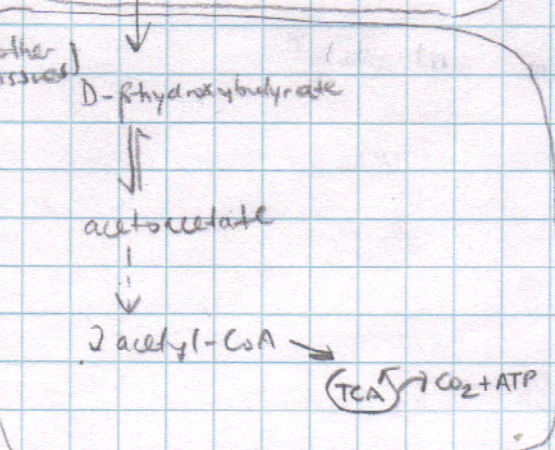 other
tissues]
D-β-hydroxybutyrate
acetoacetate
2 acetyl-CoA
TCA → CO₂ + ATP